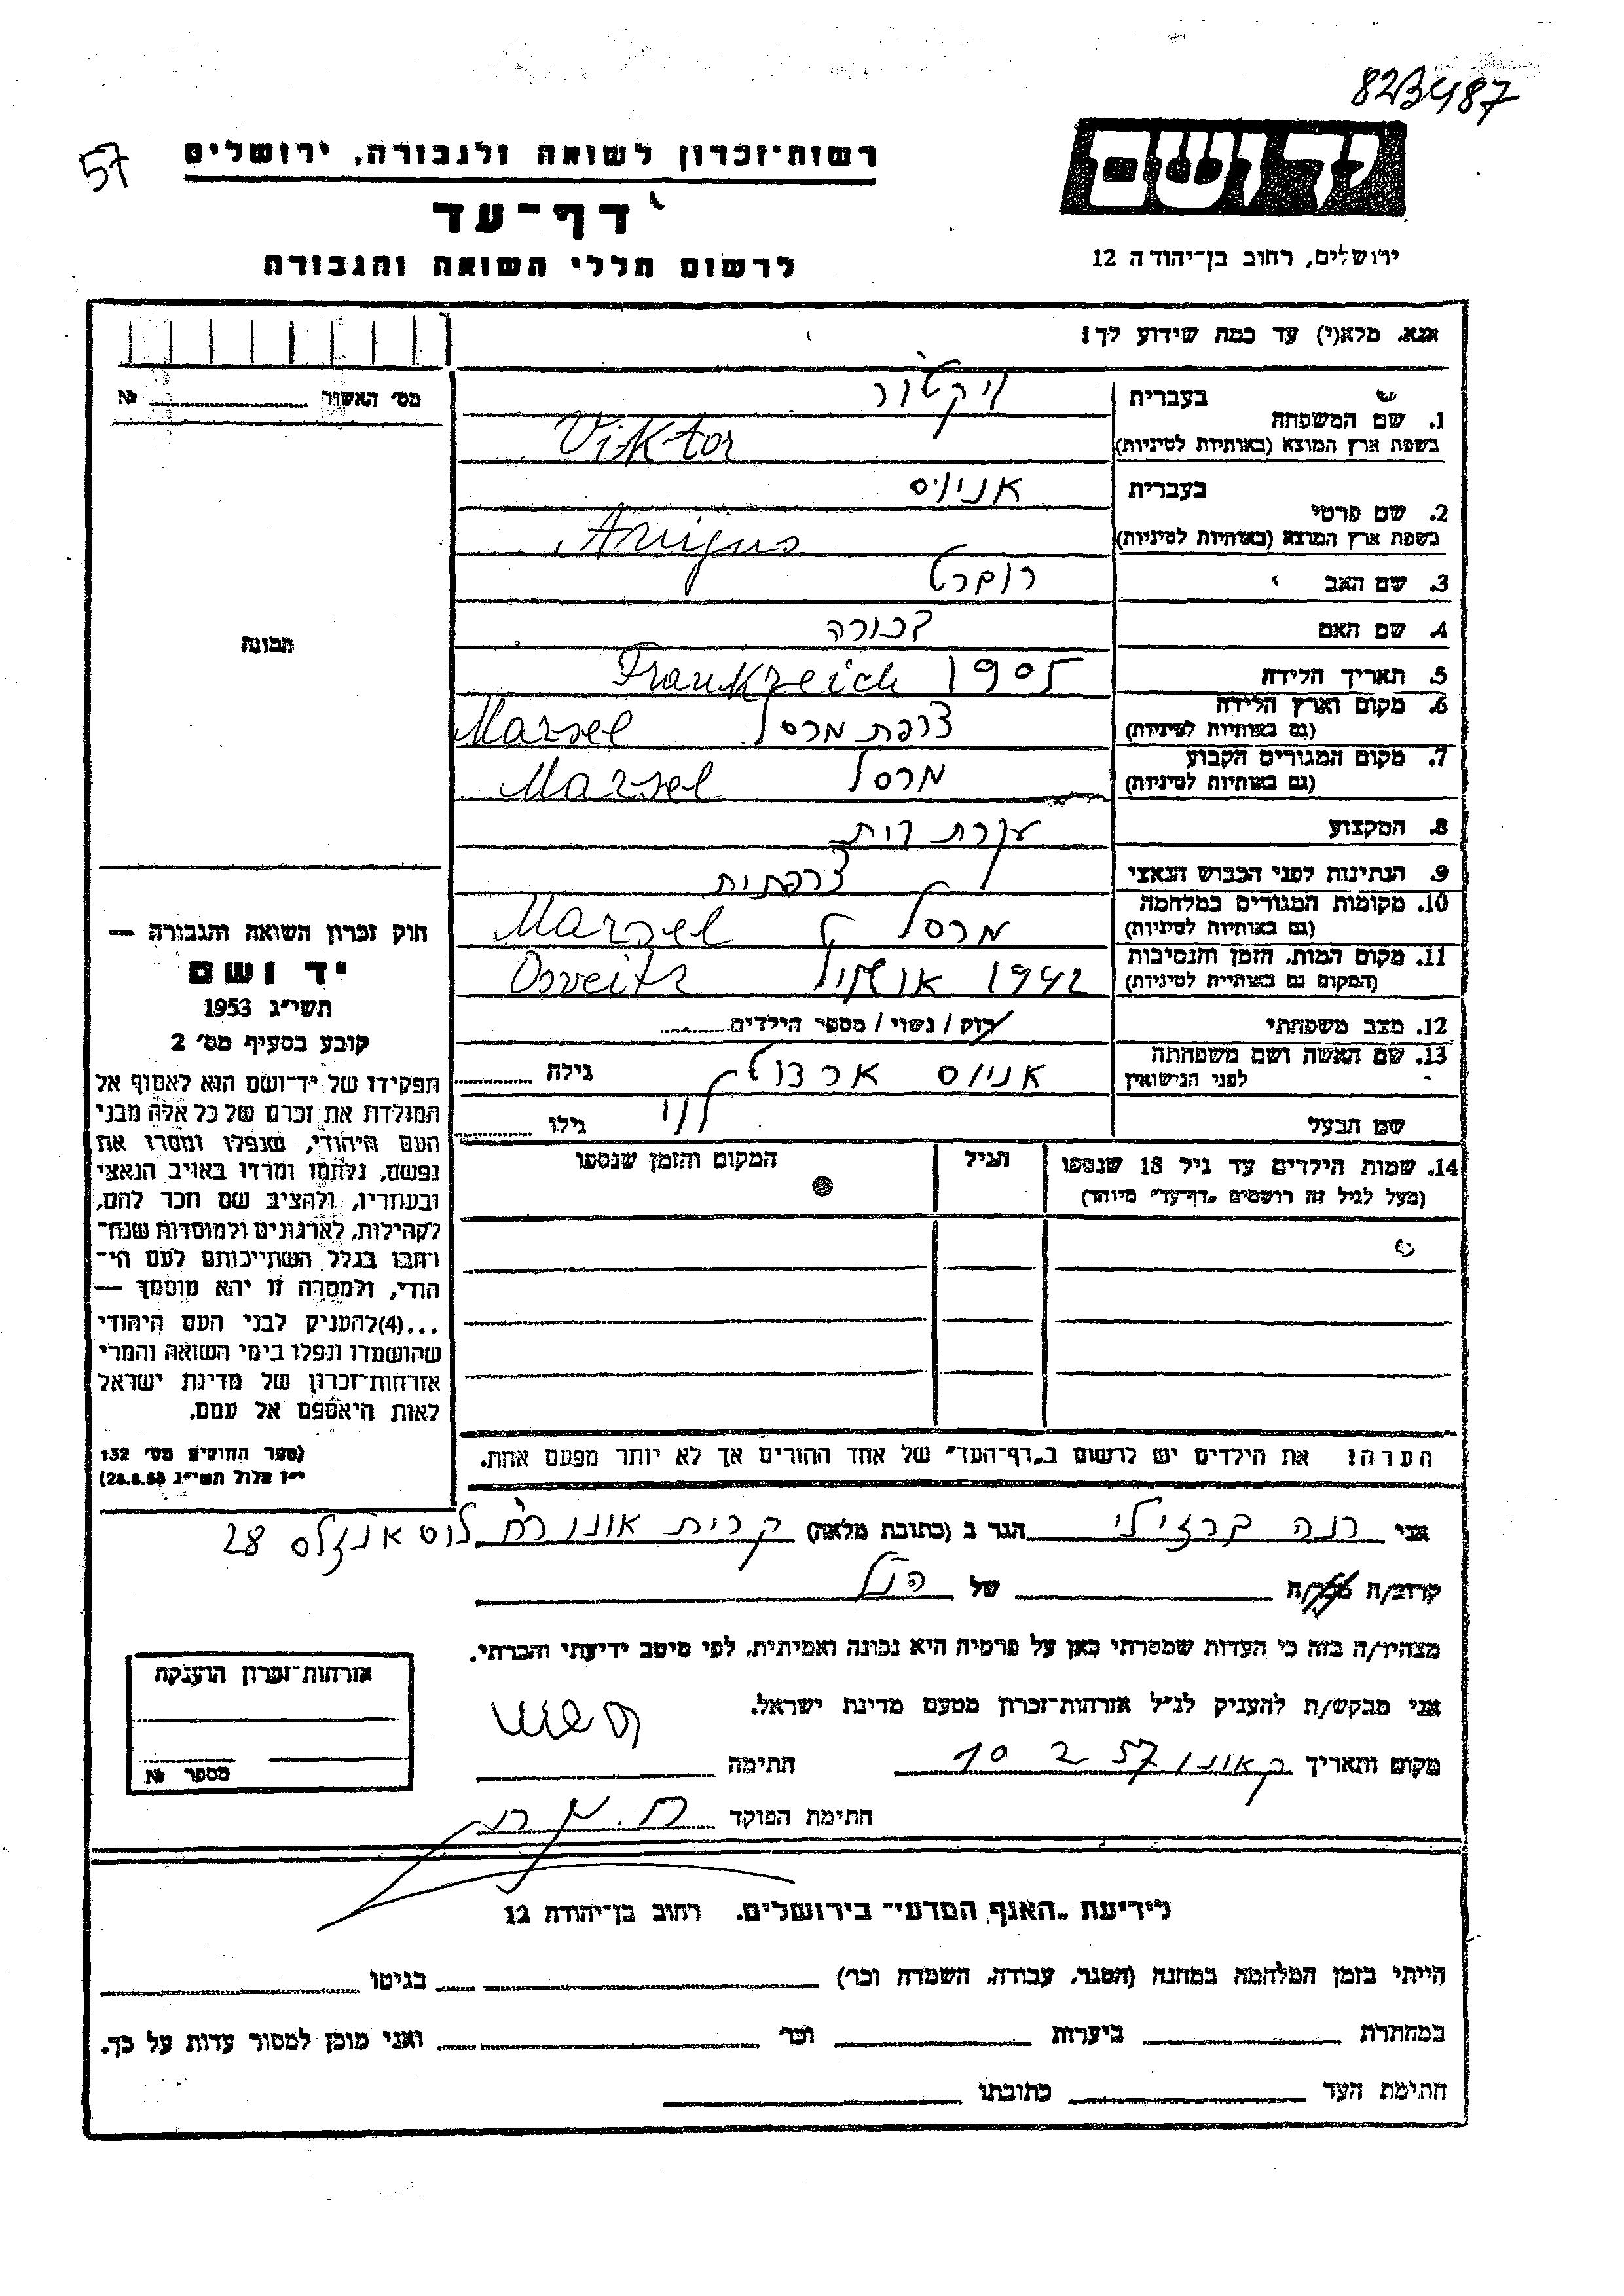 823487
57
רשות־זכרון לשואה ולגבורה, ירושלים
דף־עד
לרשום חללי השואה והגבורה
יד ושם
ירושלים, רחוב בן־יהודה 12
אנא, מלא(י) עד כמה שידוע לך!
מס' האשור № 
תמונה
1. שם המשפחה
בעברית ויקטור
בשפת ארץ המוצא (באותיות לטיניות) Viktor
2. שם פרטי
בעברית אניוס
בשפת ארץ המוצא (באותיות לטיניות) Anijus
3. שם האב רוברט
4. שם האם
5. תאריך הלידה 1905 Frankreich
6. מקום וארץ הלידה (גם באותיות לטיניות) צרפת מרסל Marsel
7. מקום המגורים הקבוע (גם באותיות לטיניות) מרסל Marsel
8. המקצוע עקרת בית
9. הנתינות לפני הכבוש הנאצי צרפתית
10. מקומות המגורים במלחמה (גם באותיות לטיניות) מרסל Marsel
11. מקום המות, הזמן והנסיבות (המקום גם באותיות לטיניות) 1942 Osveitz
12. מצב משפחתי רווק / נשוי / מספר הילדים
13. שם האשה ושם משפחתה לפני הנישואין אניוס גילה
שם הבעל לוי גילו
14. שמות הילדים עד גיל 18 שנספו
(מעל לגיל זה רושמים „דף־עד" מיוחד)
הגיל
המקום והזמן שנספו
הערה! את הילדים יש לרשום ב„דף־העד" של אחד ההורים אך לא יותר מפעם אחת.
חוק זכרון השואה והגבורה —
יד ושם
תשי"ג 1953
קובע בסעיף מס' 2
תפקידו של יד־ושם הוא לאסוף אל
המולדת את זכרם של כל אלה מבני
העם היהודי, שנפלו ומסרו את
נפשם, נלחמו ומרדו באויב הנאצי
ובעוזריו, ולהציב שם וזכר להם,
לקהילות, לארגונים ולמוסדות שנח־
רבו בגלל השתייכותם לעם הי־
הודי, ולמטרה זו יהא מוסמך —
...(4)להעניק לבני העם היהודי
שהושמדו ונפלו בימי השואה והמרי
אזרחות־זכרון של מדינת ישראל
לאות היאספם אל עמם.
(ספר החוקים מס' 132
י"ז אלול תשי"ג 28.8.53)
אני רנה ברזילי הגר ב (כתובת מלאה) קרית אונו רח לוס אנג'לס 28
קרוב/ה מכר/ה של הנ"ל
מצהיר/ה בזה כי העדות שמסרתי כאן על פרטיה היא נכונה ואמיתית, לפי מיטב ידיעתי והכרתי.
אני מבקש/ת להעניק לנ"ל אזרחות־זכרון מטעם מדינת ישראל.
מקום והתאריך ק אונו 10 2 57 חתימה
חתימת הפוקד
אזרחות־זכרון הוענקה
מספר №
לידיעת „האגף המדעי" בירושלים, רחוב בן־יהודה 12
הייתי בזמן המלחמה במחנה (הסגר, עבודה, השמדה וכו') בגיטו
במחתרת ביערות וכו' ואני מוכן למסור עדות על כך.
חתימת העד כתובתו